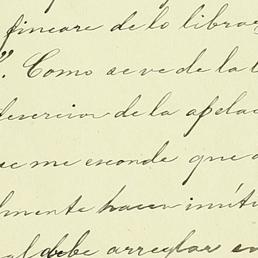 fincare de lo libra
". Como se ve de la
desercion de la apelac
se me esconde que a
lmente hacer inúti
al debe arreglar en